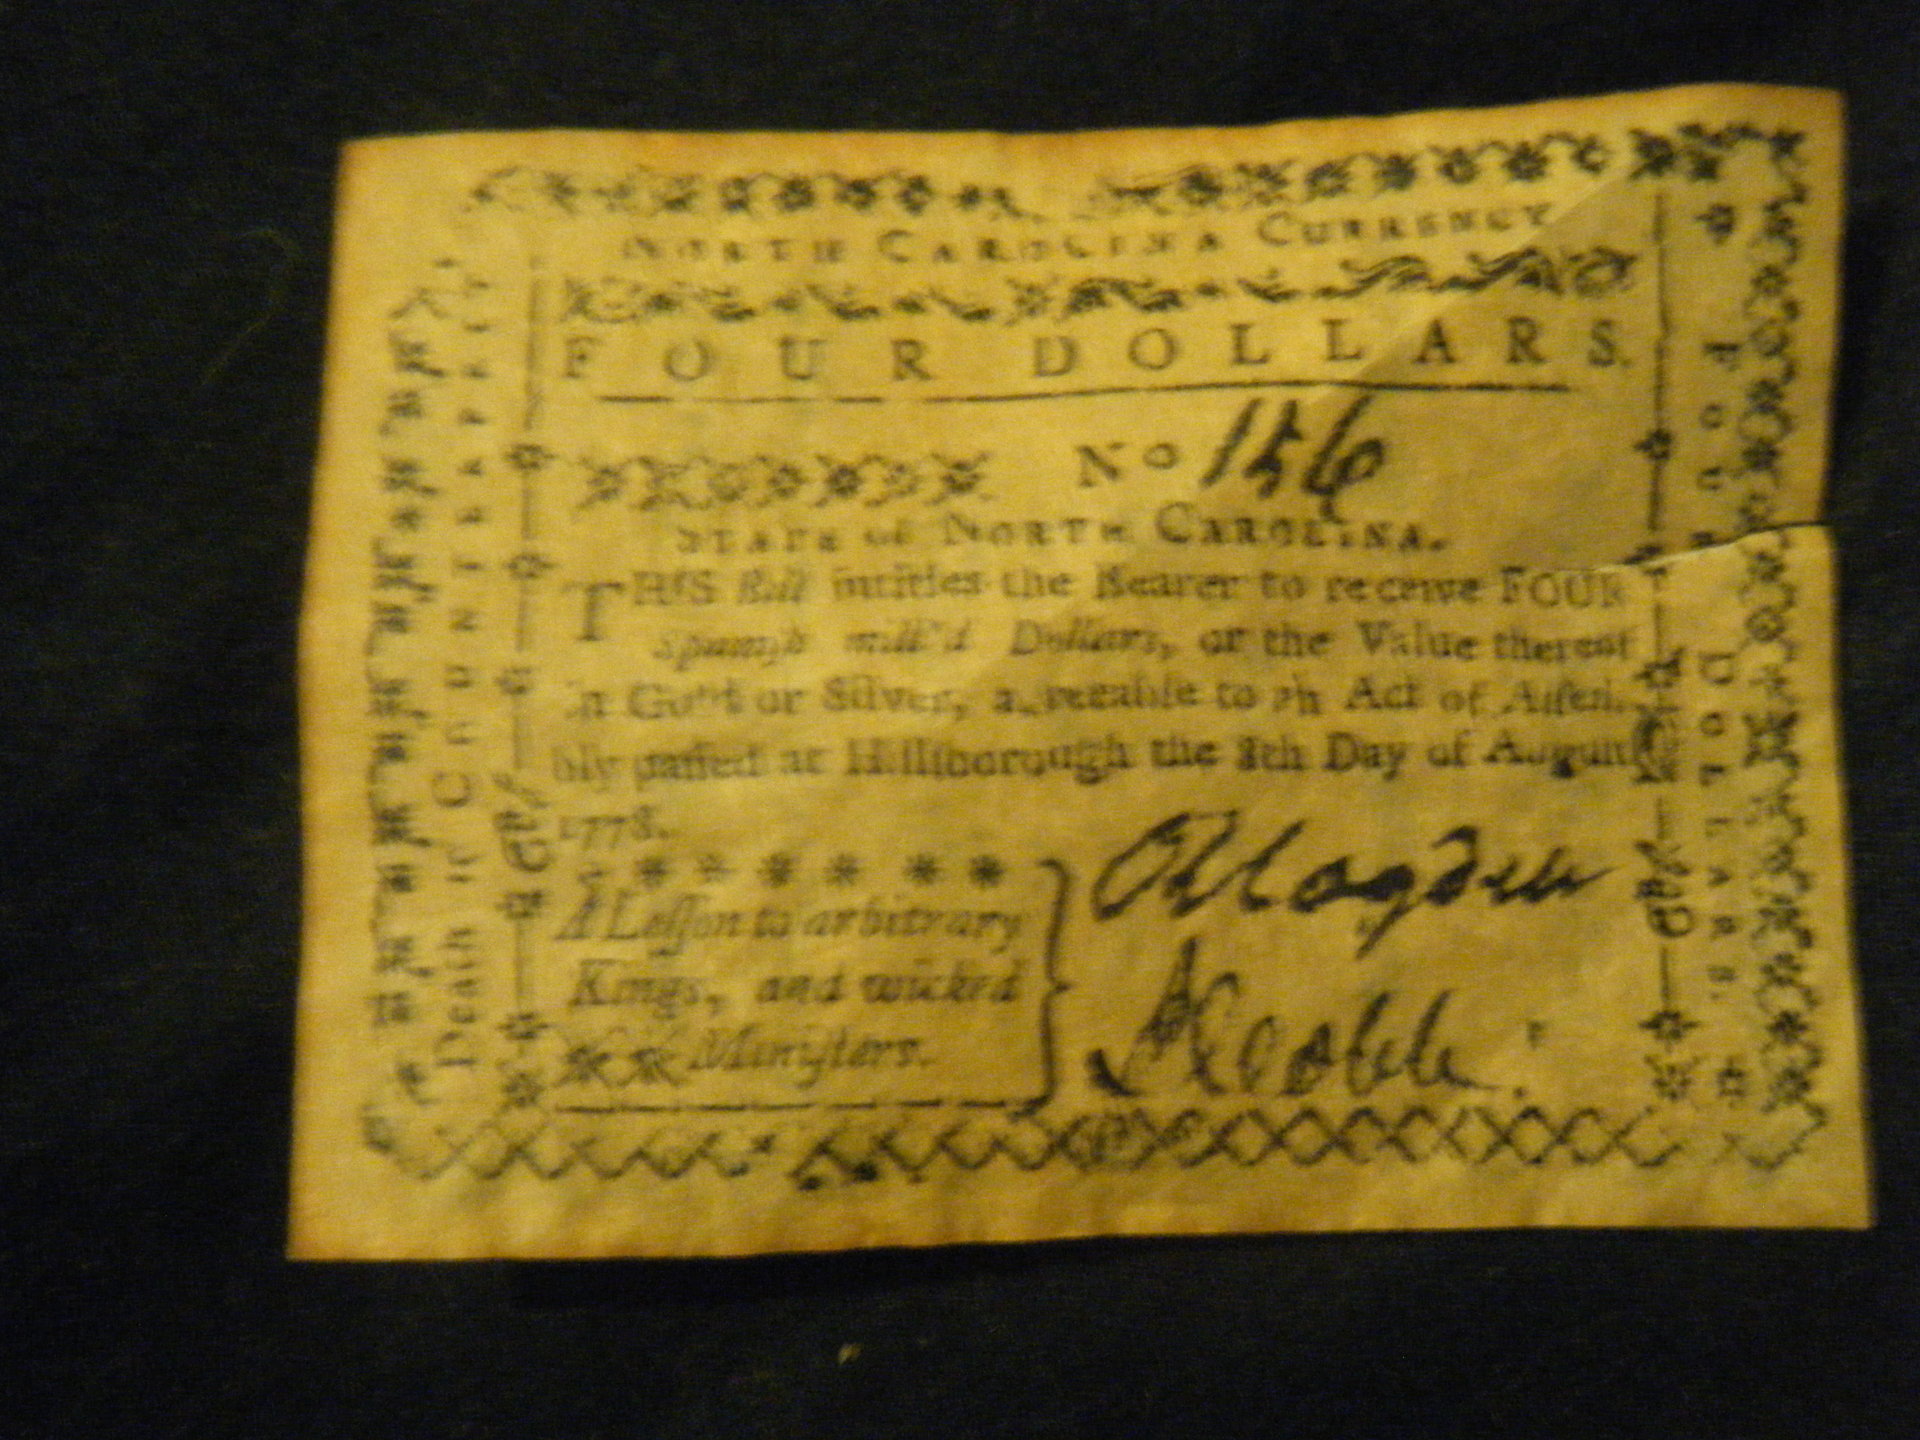 NORTH CAROLINA CURRENCY
FOUR DOLLARS.
No 156
STATE of NORTH CAROLINA.
THIS Bill intitles the Bearer to receive FOUR
Spanish mill'd Dollars, or the Value thereof
in Gold or Silver, agreeable to an Act of Assem
bly passed at Hillsborough the 8th Day of August
1778.
A Lesson to arbitrary
Kings, and wicked
Ministers.
Death to COUNTERFEIT
FOUR DOLLARS.